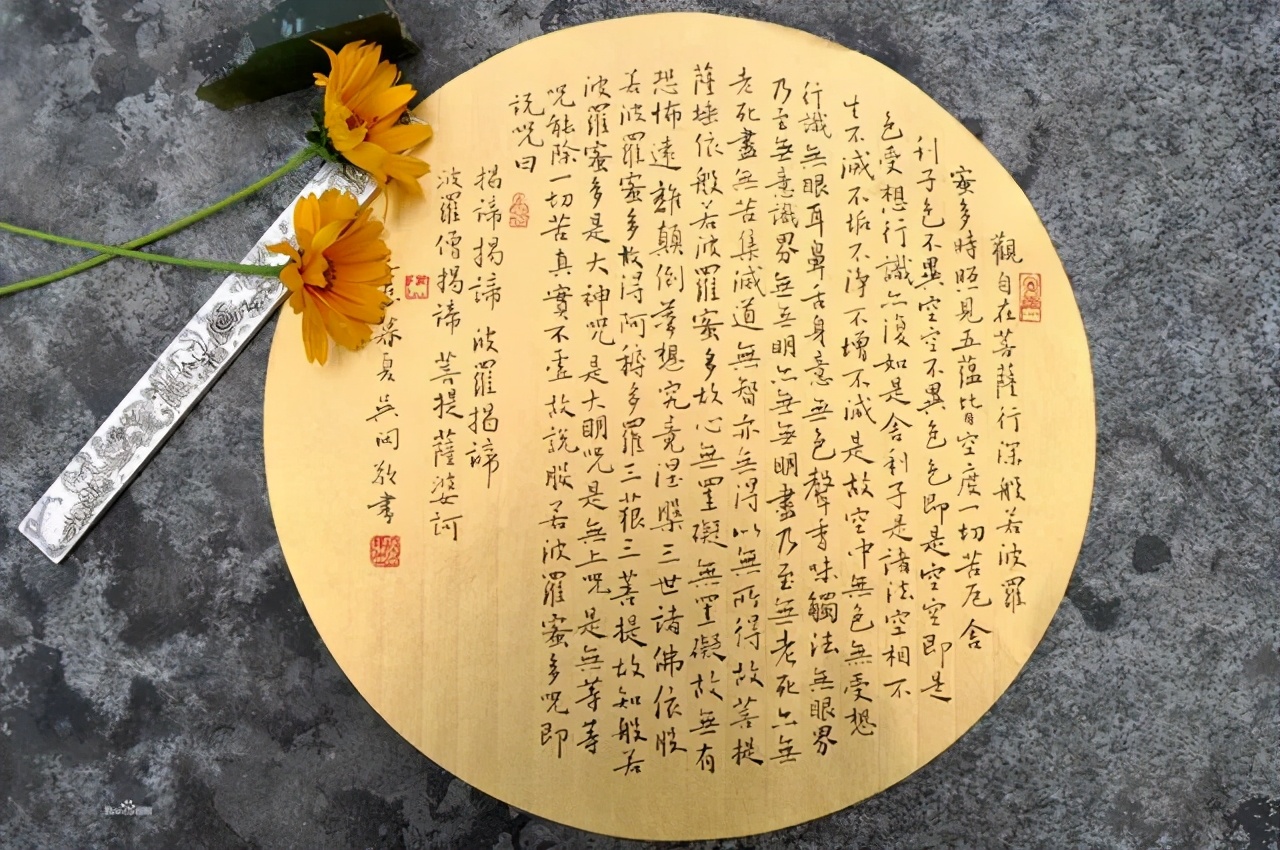 觀自在菩薩行深般若波羅
蜜多時照見五蘊皆空度一切苦厄舍
利子色不異空空不異色色即是空空即是
色受想行識亦復如是舍利子是諸法空相不
生不滅不垢不淨不增不減是故空中無色無受想
行識無眼耳鼻舌身意無色聲香味觸法無眼界
乃至無意識界無無明亦無無明盡乃至無老死亦無
老死盡無苦集滅道無智亦無得以無所得故菩提
薩埵依般若波羅蜜多故心無罣礙無罣礙故無有
恐怖遠離顛倒夢想究竟涅槃三世諸佛依般
若波羅蜜多故得阿耨多羅三藐三菩提故知般若
波羅蜜多是大神咒是大明咒是無上咒是無等等
咒能除一切苦真實不虛故說般若波羅蜜多咒即
說咒曰
揭諦揭諦 波羅揭諦
波羅僧揭諦 菩提薩婆訶
夏吳閩敬書